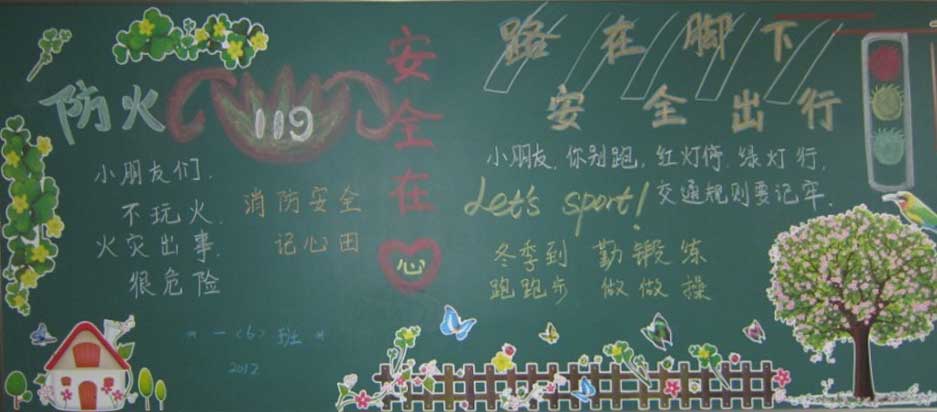 防火
119
小朋友们,
不玩火.
火灾出事,
很危险
消防安全
记心田
安全在心
*一<6>班*
2012
路在脚下
安全出行
小朋友,你别跑,红灯停,绿灯行,
交通规则要记牢.
Let's sport!
冬季到 勤锻练
跑跑步 做做操